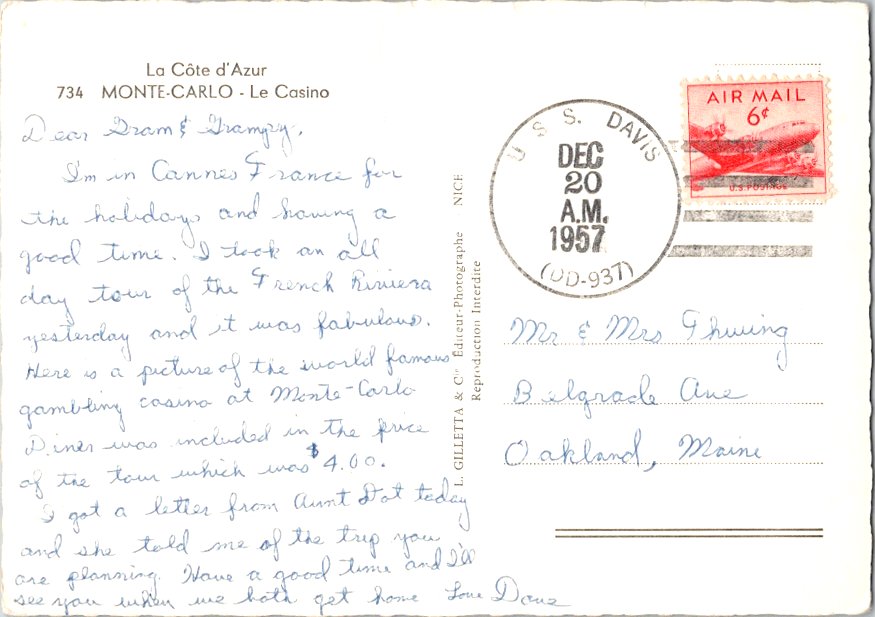 La Côte d'Azur
734 MONTE-CARLO - Le Casino
Dear Gram & Grampy,
I'm in Cannes France for
the holidays and having a
good time. I took an all
day tour of the French Riviera
yesterday and it was fabulous.
Here is a picture of the world famous
gambling casino at Monte-Carlo
Diner was included in the price
of the tour which was $4.00.
I got a letter from Aunt Dot today
and she told me of the trip you
are planning. Have a good time and I'll
see you when we both get home Love Dave
L. GILLETTA & Cie Éditeur-Photographe NICE
Reproduction Interdite
U S S. DAVIS
DEC
20
A.M.
1957
(DD-937)
AIR MAIL
6¢
U.S. POSTAGE
Mr & Mrs Thwing
Belgrade Ave
Oakland, Maine